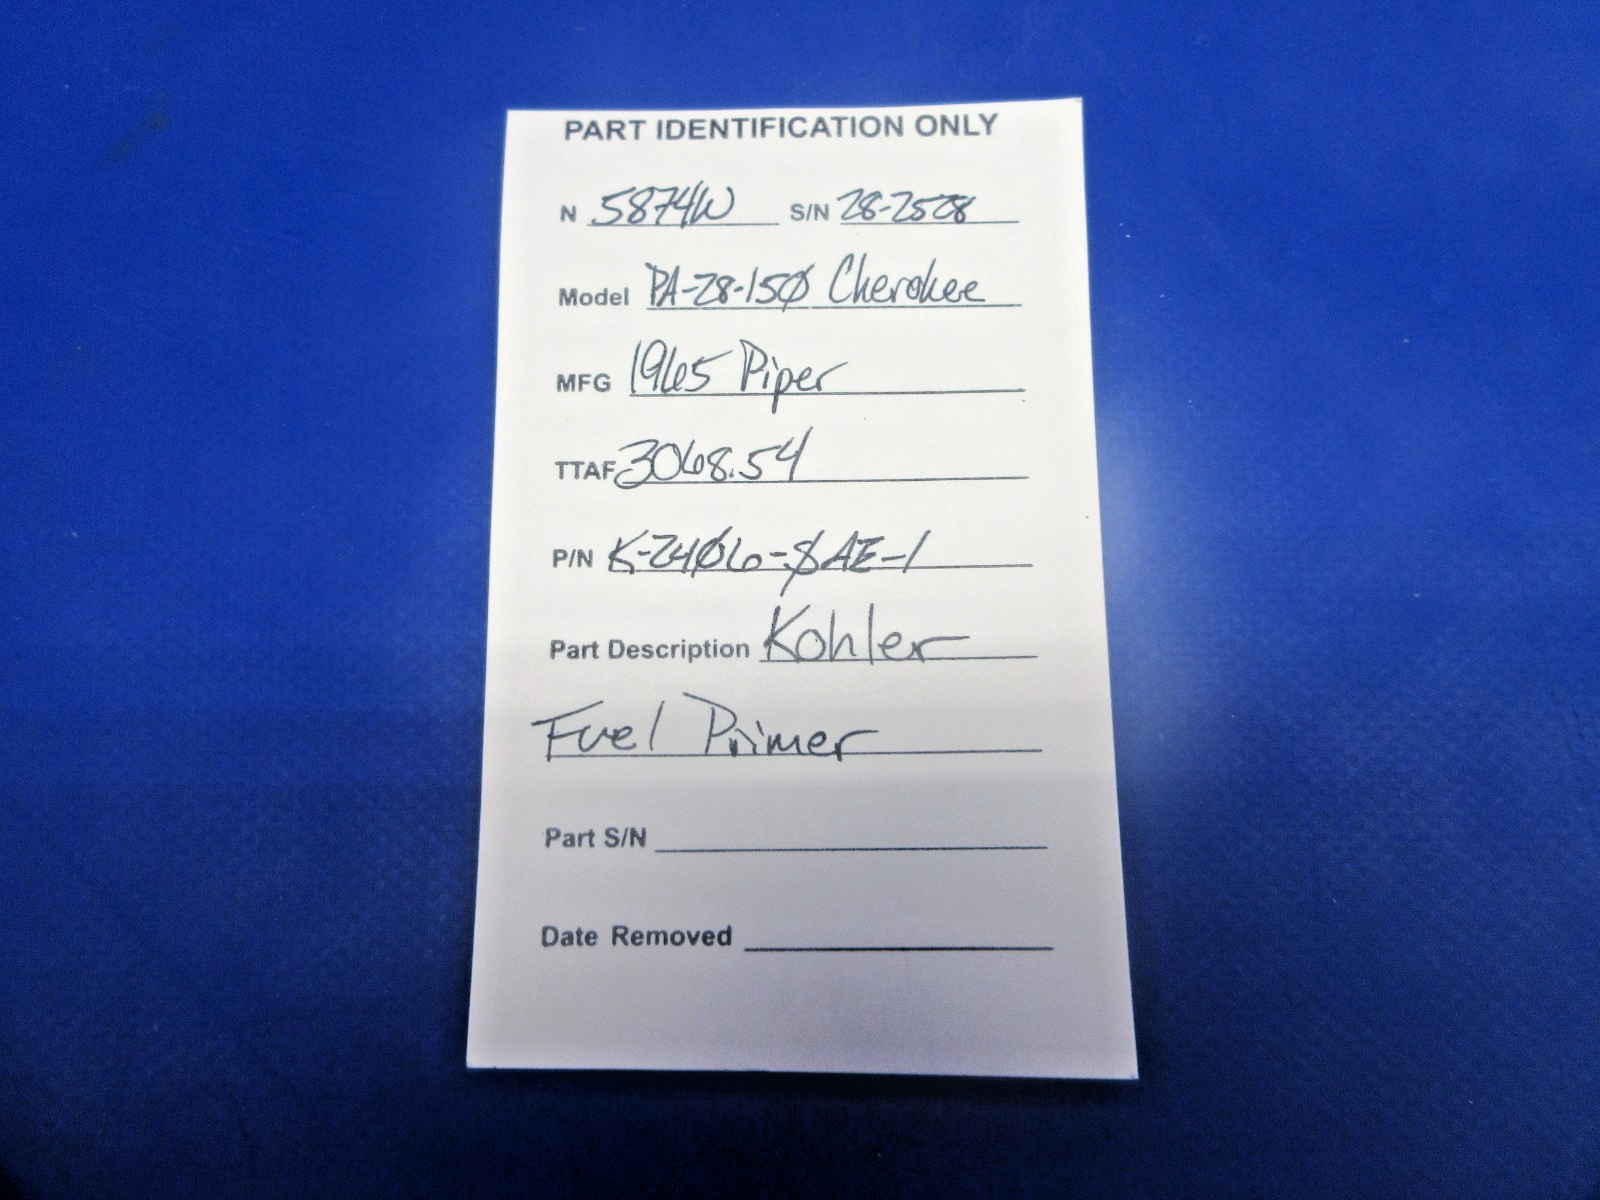 PART IDENTIFICATION ONLY
N 5874W S/N 28-2528
Model PA-28-150 Cherokee
MFG 1965 Piper
TTAF 3068.54
P/N K-2406-8AE-1
Part Description Kohler
Fuel Primer
Part S/N
Date Removed